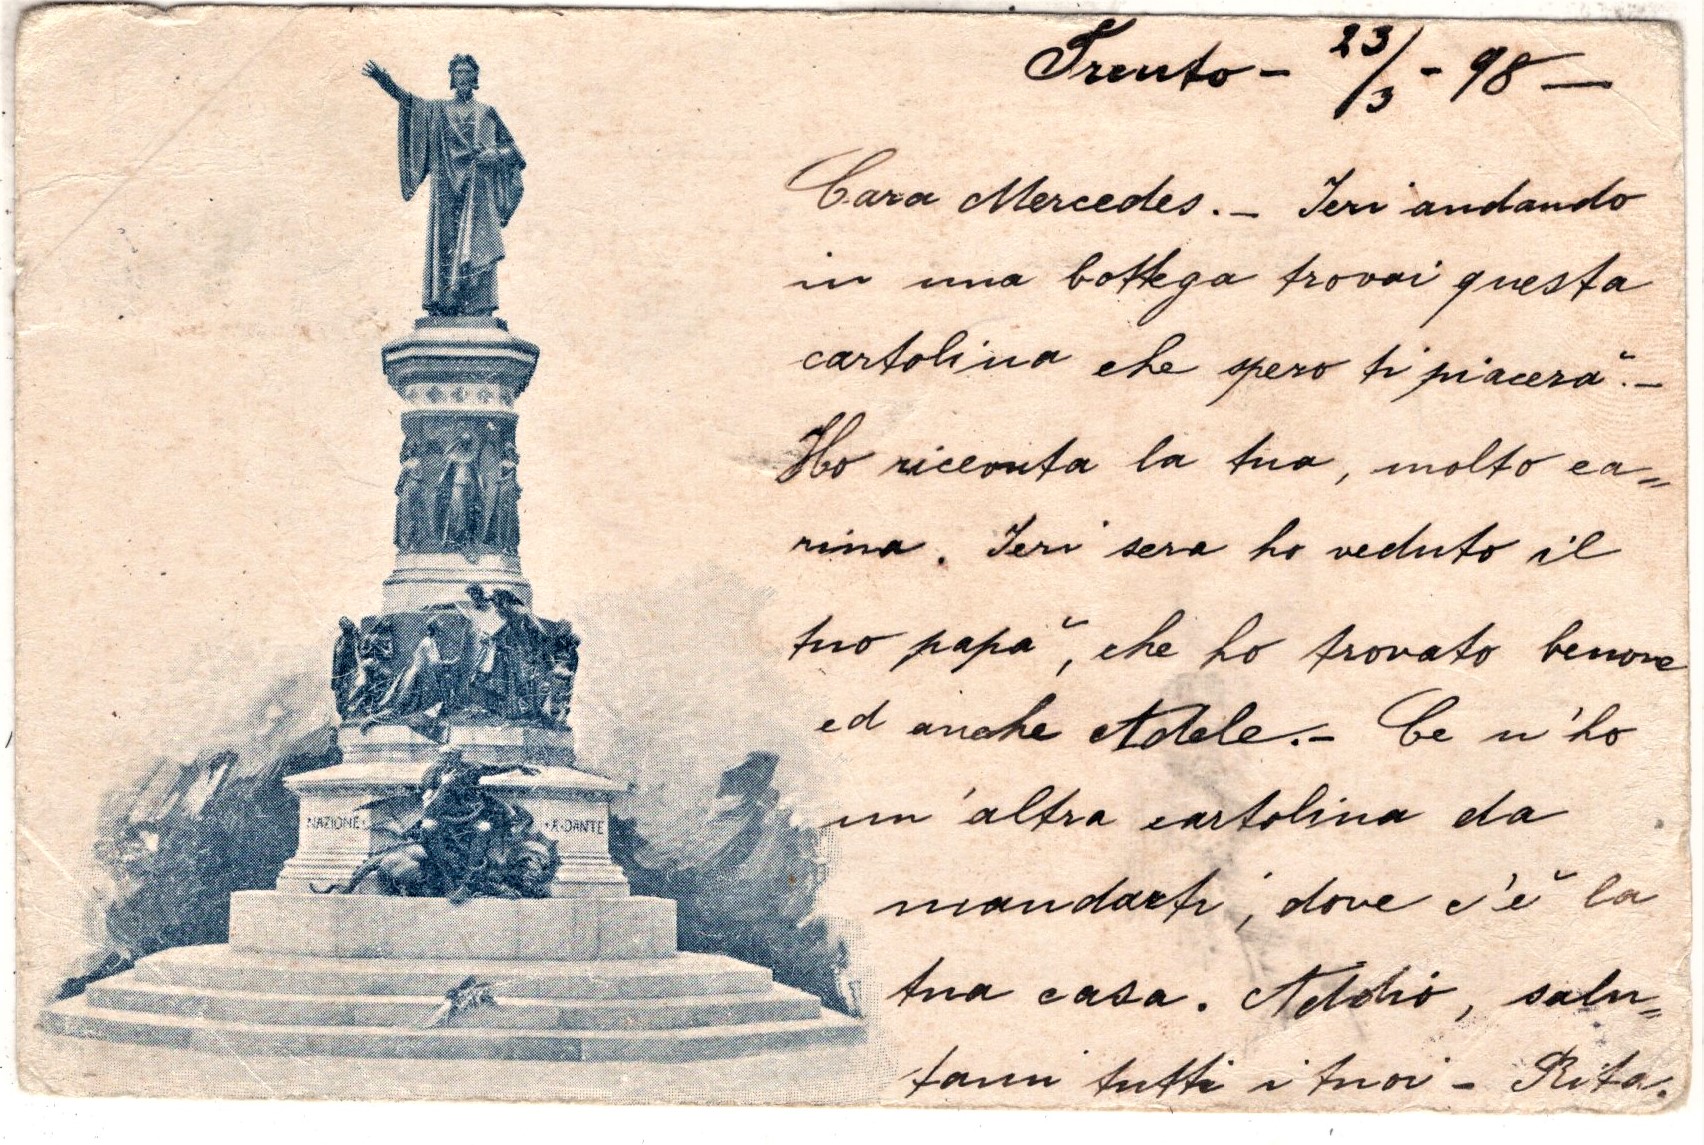 Trento - 23/3 - 98 —
Cara Mercedes. — Ieri andando
in una bottega trovai questa
cartolina che spero ti piacerà. —
Ho ricevuta la tua, molto ca=
rina. Ieri sera ho veduto il
tuo papà, che ho trovato benone
ed anche Adele. — Ce n'ho
un'altra cartolina da
mandarti, dove c'è la
tua casa. Addio, salu=
tami tutti i tuoi — Rita.
NAZIONE
DANTE